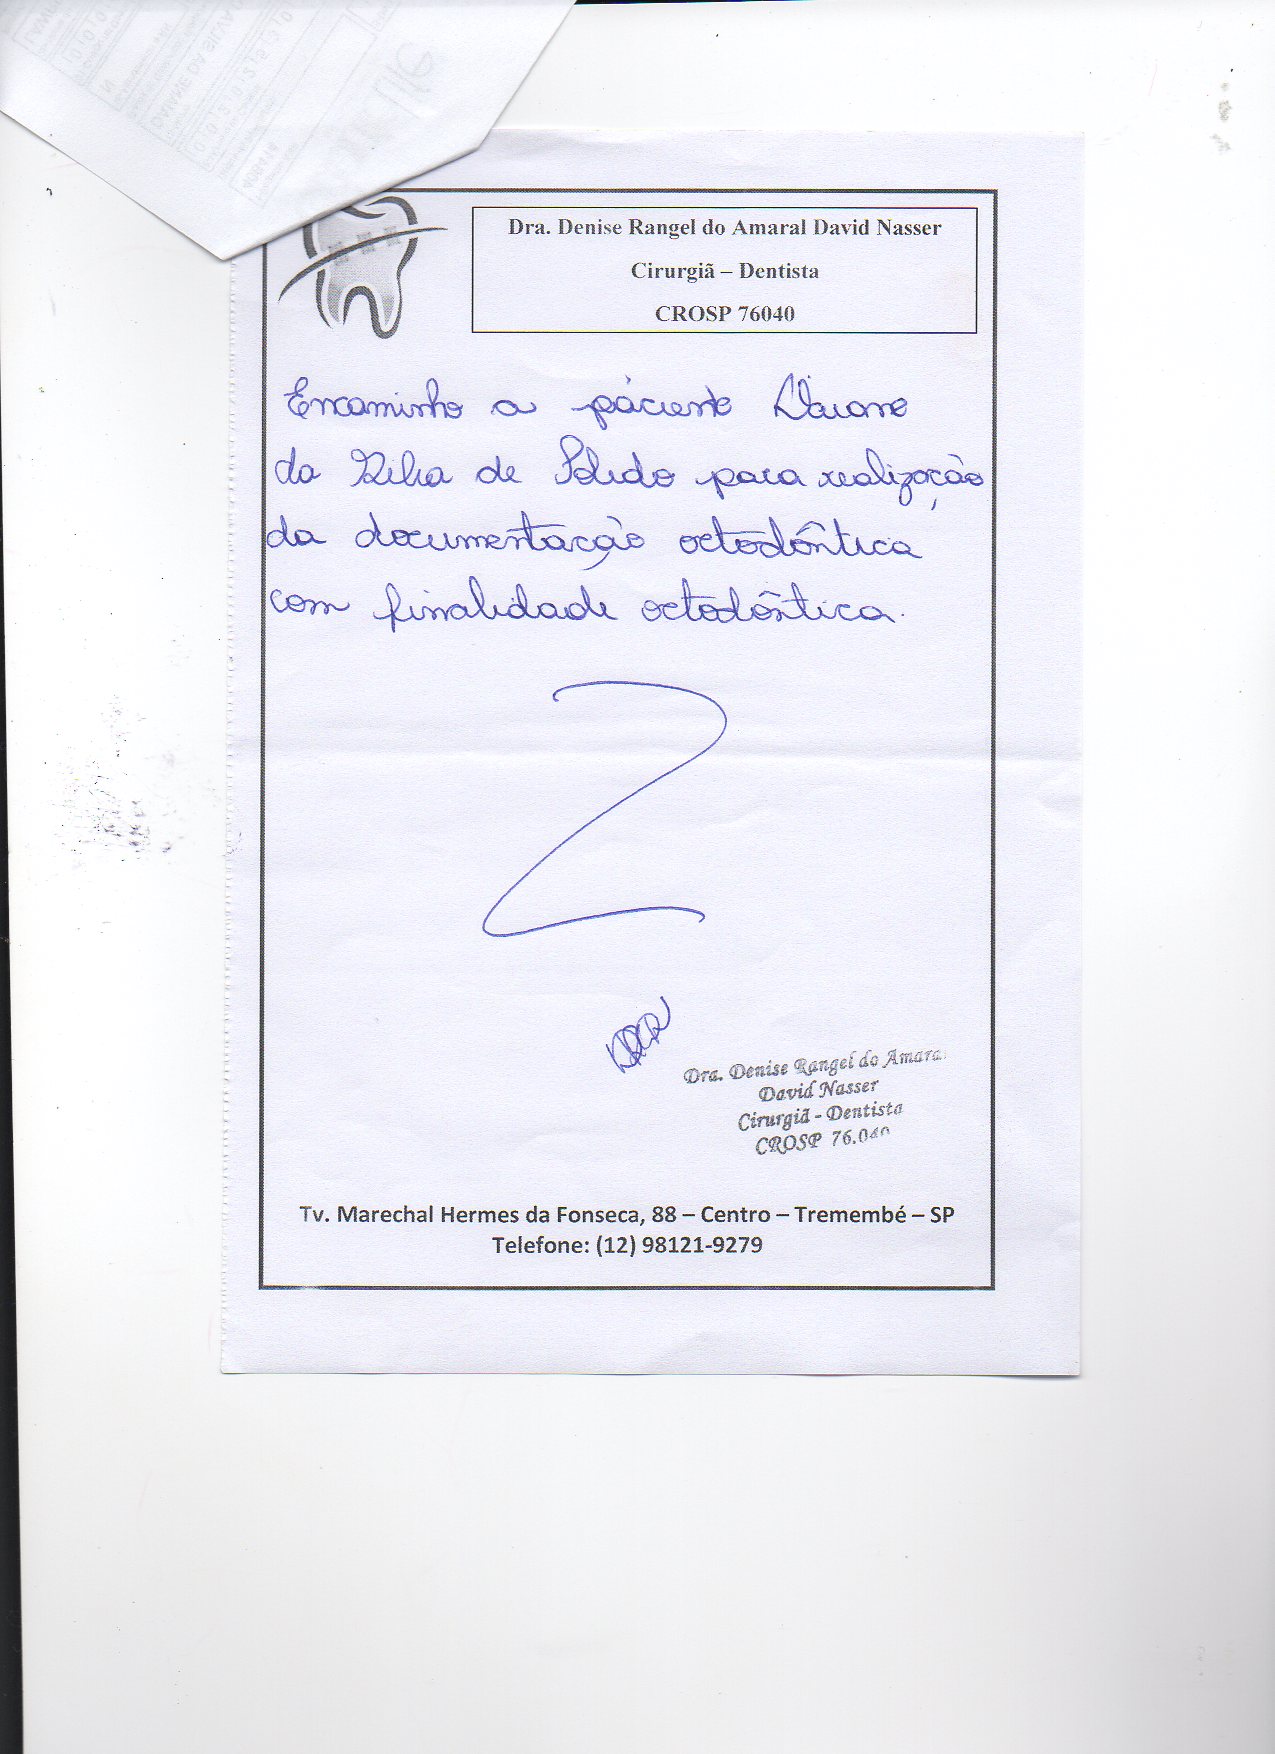 Dra. Denise Rangel do Amaral David Nasser
Cirurgiã – Dentista
CROSP 76040
Encaminho a paciente Daiane
da Silva de Toledo para realização
da documentação octodôntica
com finalidade octodôntica.
Dra. Denise Rangel do Amara
David Nasser
Cirurgiã - Dentista
CROSP 76.040
Tv. Marechal Hermes da Fonseca, 88 – Centro – Tremembé – SP
Telefone: (12) 98121-9279